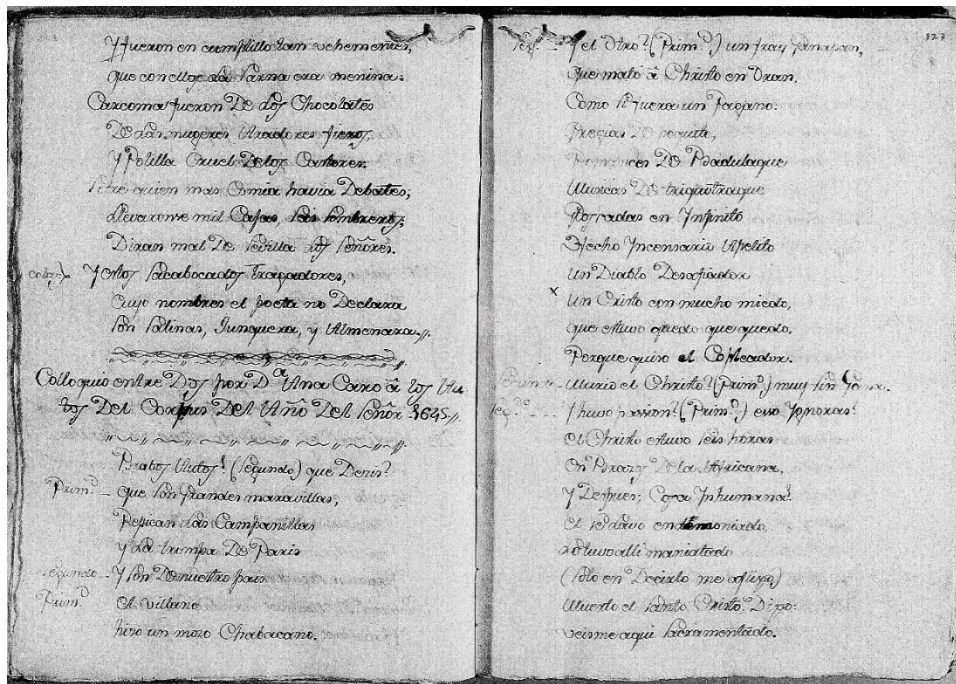 Y fueron en cumplillo tan vehementes,
que con ellos la sarna era menina.
Carcoma fueron De los Chocolates
De las mugeres Aradores fieros,
Y Polilla Cruel De los Cantores.
Sobre quien mas Comia havia Debates;
llevaronse mil Cajas, seis sombreros;
Diran mal De Sevilla los señores.
Y estos sacabocados tragadores,
Cuyo nombres el poeta no Declara
son Salinas, Junquera, y Almenara.
Colloquio entre Dos por D.ª Ana Caro â los Au-
tos Del Corpus Del Año Del Señor 1645.
Brabos Autos! (segundo) que Dezis?
Prim.º - que son grandes maravillas,
Repican las Campanillas
y la trompa De Paris
segundo - Y son De nuestro pais
Prim.º El Villano
hizo un mozo Chabacano.
127
seg.º - Y el Otro? (Prim.º) un fray ganapan,
que mató â Christo en Oran,
Como si fuera un Pagano:
Preçias De poquito,
Romances De Badulaque
Musicas De triquitraque
Aforradas en Infinito
Hecho Incensario Apelito
Un Diablo Desafiador
x Un Cristo con mucho miedo,
que estuvo quedo que quedo,
Porque quiso el Contador.
Segundo - Murio el Christo? (Prim.º) muy sin gana.
seg.do - Y huvo passion? (Prim.º) esso Ignoras?
el Christo estuvo seis horas
En Brazos De la Africana,
Y Despues, Cosa Inhumana!
el esclavo endemoniado,
lo tuvo alli maniatado
(solo en Decirlo me aflijo)
Muerto el santo Cristo Dijo:
veisme aqui sacramentado.